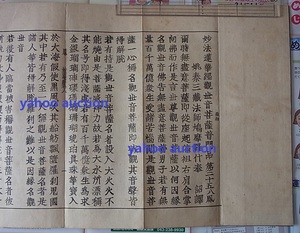 妙法蓮華經觀世音菩薩普門品第二十五
姚秦三藏法師鳩摩羅什奉 詔譯
爾時無盡意菩薩即從座起偏袒右肩合掌
向佛而作是言世尊觀世音菩薩以何因緣
名觀世音佛告無盡意菩薩善男子若有無
量百千萬億衆生受諸苦惱聞是觀世音菩
薩一心稱名觀世音菩薩即時觀其音聲皆
得解脫
若有持是觀世音菩薩名者設入大火火不
能燒由是菩薩威神力故若爲大水所漂稱
其名號即得淺處若有百千萬億衆生爲求
金銀瑠璃硨磲瑪瑙珊瑚琥珀真珠等寶入
於大海假使黑風吹其船舫飄墮羅刹鬼國
其中若有乃至一人稱觀世音菩薩名者是
諸人等皆得解脫羅刹之難以是因緣
若復有人臨當被害稱觀世音菩薩名者彼
yahoo auction
yahoo auction